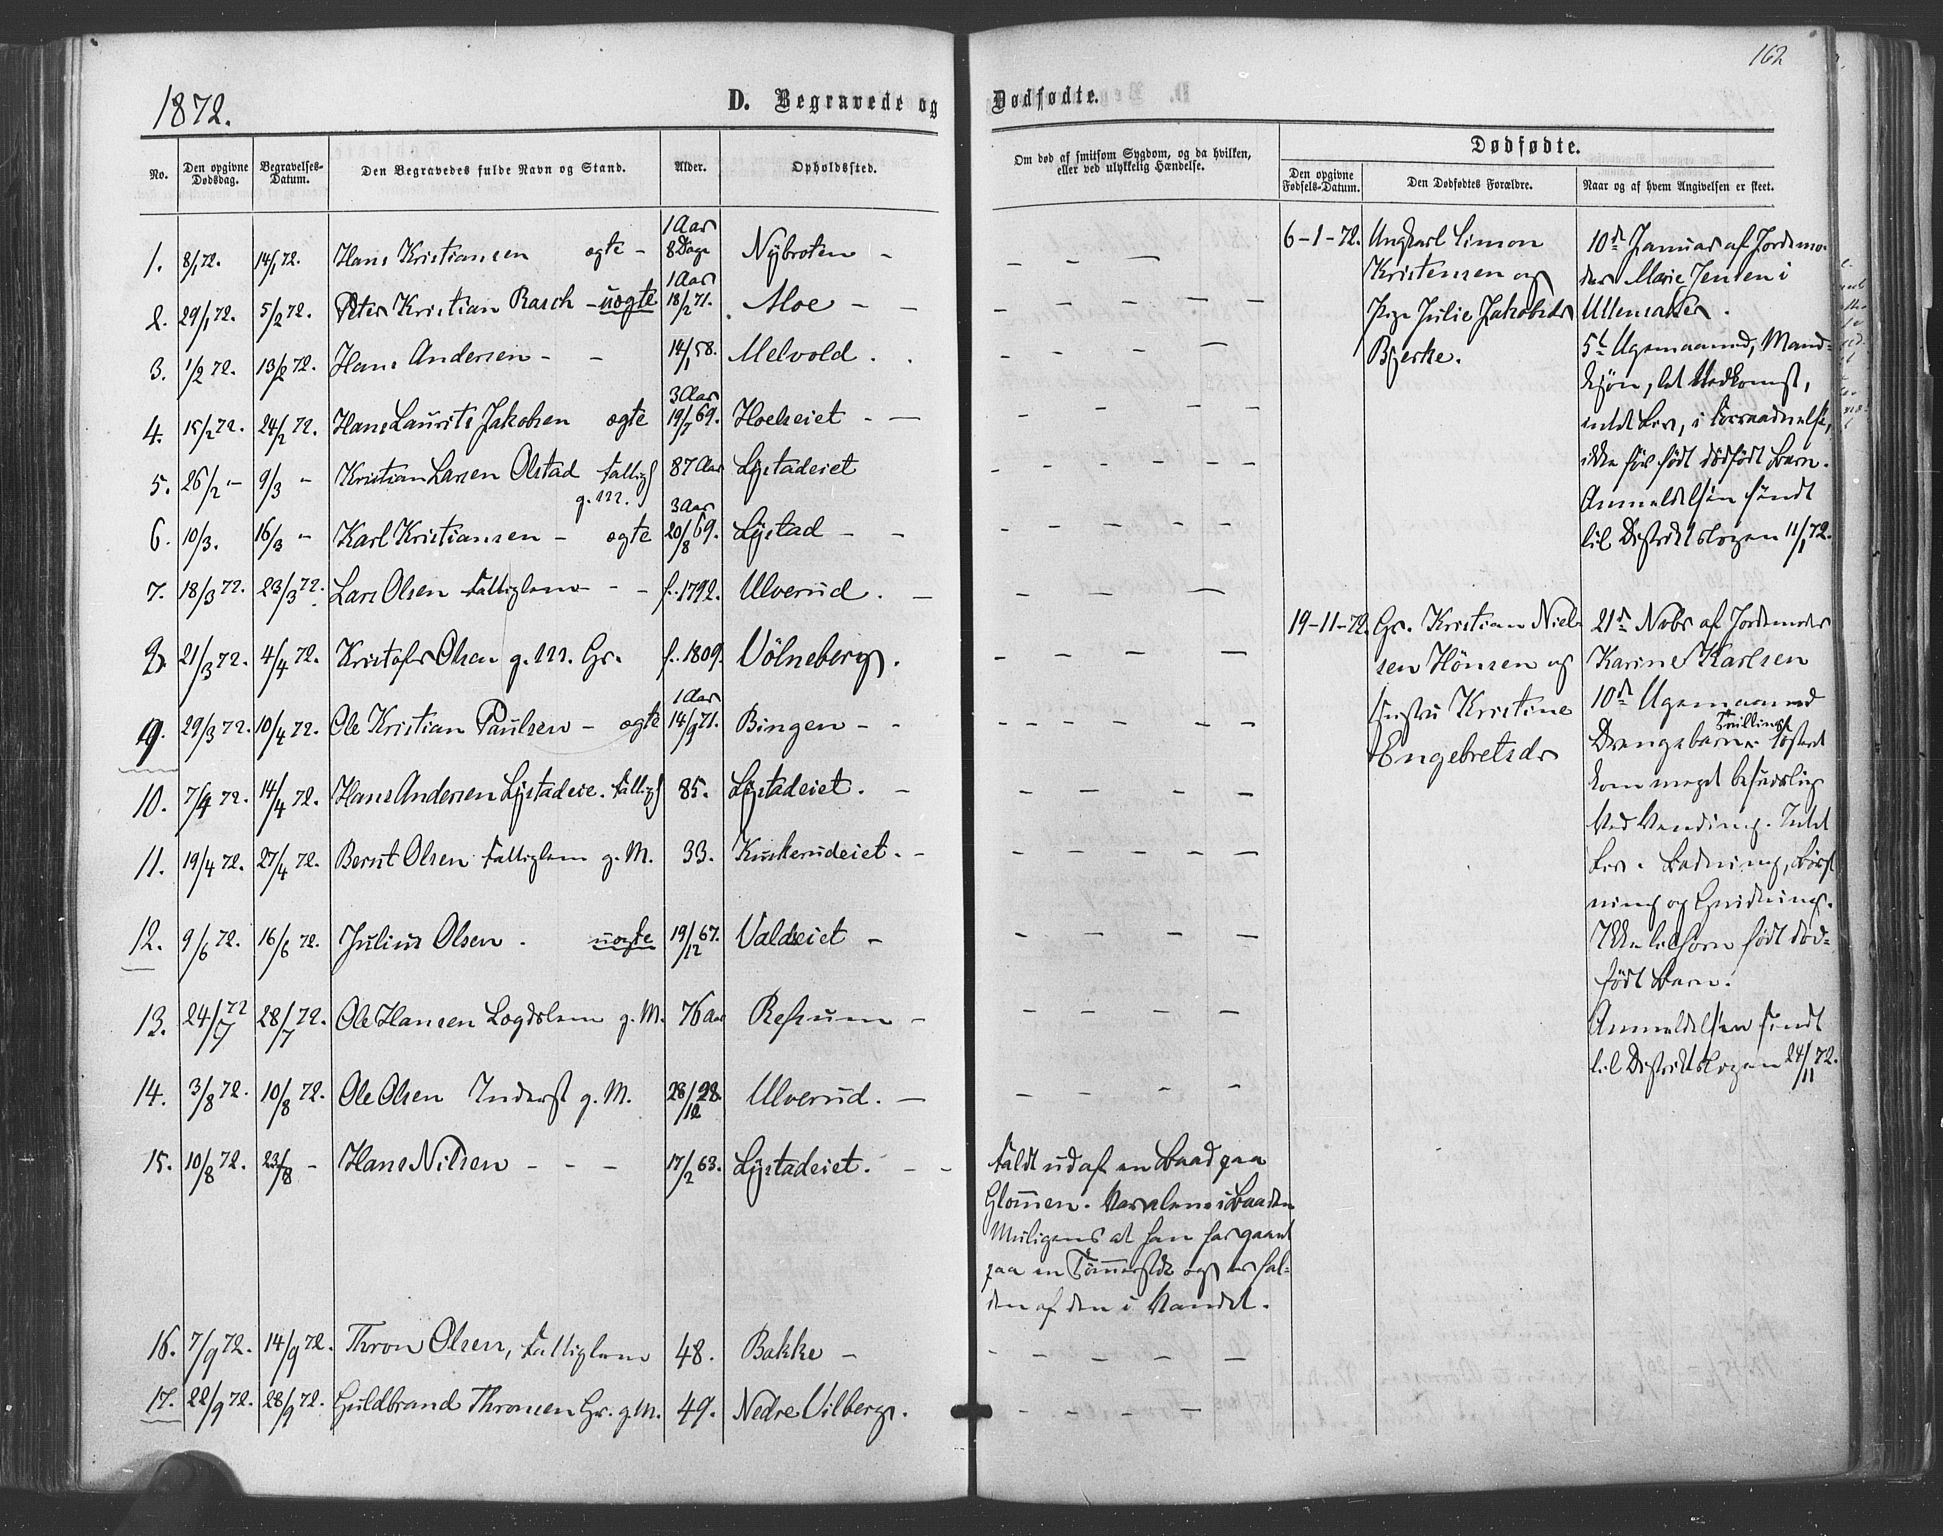 162
1872.
D. Begravede og Dødfødte.
No.
Den opgivne Dødsdag.
Begravelses-Datum.
Den Begravedes fulde Navn og Stand.
Alder.
Opholdssted.
Om død af smitsom Sygdom, og da hvilken,
eller ved ulykkelig Hændelse.
Dødfødte.
Den opgivne Fødsels-Datum.
Den Dødfødtes Forældre.
Naar og af hvem Angivelsen er skeet.
1. 8/1 72. 14/1 72. Hans Kristiansen ægte - 1 Aar 8 Dage Nybroten -
2. 29/1 72. 5/2 72. Peter Kristian Rasch - uægte 1 Aar 18/2 71. Moe - -
3. 1/2 72. 13/2 72. Hans Andersen - - 14/1 58. Melvold . .
4. 15/2 72. 24/2 72. Hans Laurits Jakobsen ægte 3 Aar 19/7 69. Hoelseiet - -
5. 26/2 - 9/3 - Kristian Larsen Olstad Fattigl g. M. 87 Aar Lystadeiet
6. 10/3. 16/3 - Karl Kristiansen - ægte 3 Aar 20/8 69. Lystad - -
7. 18/3 72. 23/3 72. Lars Olsen Fattiglem - - - f. 1792. Ulverud . -
8. 21/3 72. 4/4 72. Kristofer Olsen g. M. Gr. f. 1809. Völneberg .
9. 29/3 72. 10/4 72. Ole Kristian Paulsen - ægte 1 Aar 14/9 71. Bingen - -
10. 7/4 72. 14/4 72. Hans Andersen Lystadeie. Fattigl 85. Lystadeiet. -
11. 19/4 72. 27/4 72. Bernt Olsen Fattiglem g. M. 33. Kuskerudeiet. -
12. 9/6 72. 16/6 72. Julius Olsen . uægte 19/12 67. Valdseiet -
13. 24/7 72 28/7 72. Ole Hansen Lægdslem g. M. 76 Aar Refsum -
14. 3/8 72. 10/8 72. Ole Olsen Inderst g. M. 28/12 28. Ulverud. -
15. 10/8 72. 23/8 - Hans Nilsen - - - 17/2 63. Lystadeiet. - -
Faldt ud af en Baad paa
Glommen. Var alene i Baaden
Muligens at han har gaaet
paa en Tømmer og er fal-
den af den i Vandet.
16. 7/9 72. 14/9 72. Thron Olsen, Fattiglem 48. Bakke -
17. 22/9 72. 28/9 72. Guldbrand Thronsen Gr. g. M. 49. Nedre Vilberg.
6-1-72. Ungkarl Simon
Kristensen og
Pige Julie Jakobsdr
Bjerke.
10de Januar af Jordemo-
der Marie Jensen i
Ullensaker.
5te Ugemaaned, Mand-
kjøn, let Nedkomst,
intet Liv, i Forraadnelse,
ikke før født dødfødt Barn.
Anmeldelsen sendt
til Distriktslægen 11/1 72.
19-11-72. Gr. Kristian Niel-
sen Hönsen og
Hustru Kristine
Engebretsdr
21de Novbr af Jordemoder
Karine Karlsen
10de Ugemaaned
Drengebarn Tvilling
kom meget besværlig
ved Vending. Intet
Liv. Badning, Børst
ning og Gnidning.
Ikke tilforn født død-
født Barn.
Anmeldelsen sendt
til Distriktslægen 24/11 72.